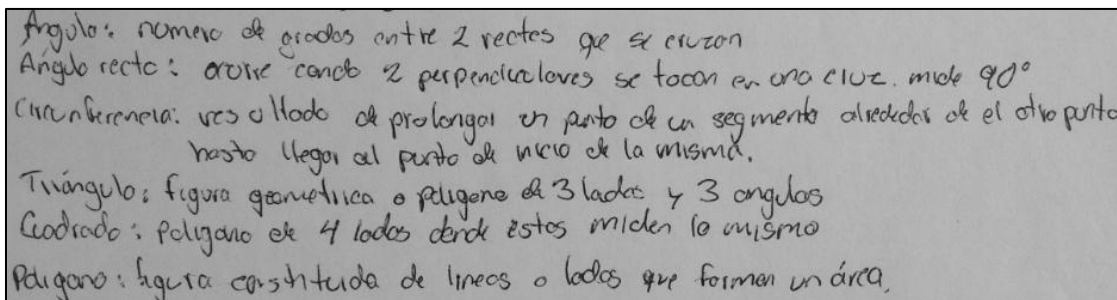 Ángulo: numero de grados entre 2 rectas que se cruzan
Ángulo recto: ocurre cando 2 perpendiculares se tocan en una cruz. mide 90°
Circunferencia: resultado de prolongar un punto de un segmento alrededor de el otro punto
hasta llegar al punto de inicio de la misma.
Triángulo: figura geométrica o poligono de 3 lados y 3 angulos
Cuadrado: poligano de 4 lados donde éstos miden lo mismo
Poligano: figura constituida de lineas o lados que formen un área.